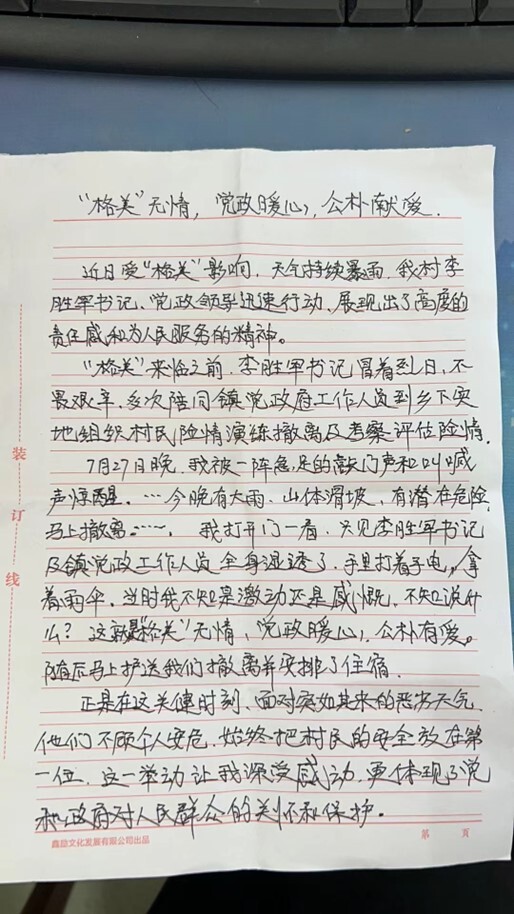 “格美”无情，党政暖心，公朴献爱．
近日受“格美”影响．天气持续暴雨．我村李
胜军书记、党政领导迅速行动．展现出了高度的
责任感和为人民服务的精神。
“格美”来临之前．李胜军书记冒着烈日，不
畏艰辛．多次陪同镇党政府工作人员到乡下实
地组织村民险情演练撤离及考察评估险情．
7月27日晚．我被一阵急足的敲门声和叫喊
声惊醒．…今晚有大雨．山体滑坡，有潜在危险，
马上撤离……．我打开门一看．只见李胜军书记
及镇党政工作人员全身湿透了．手里打着手电，拿
着雨伞．当时我不知是激动还是感慨．不知说什
么？这就是“格美”无情，党政暖心，公朴有爱。
随后马上护送我们撤离并安排了住宿．
正是在这关健时刻、面对突如其来的恶劣天气．
他们不顾个人安危．始终把村民的安全放在第
一位．这一举动让我深受感动．更体现了党
和政府对人民群众的关怀和保护。
装
订
线
文化发展有限公司出品
第 页